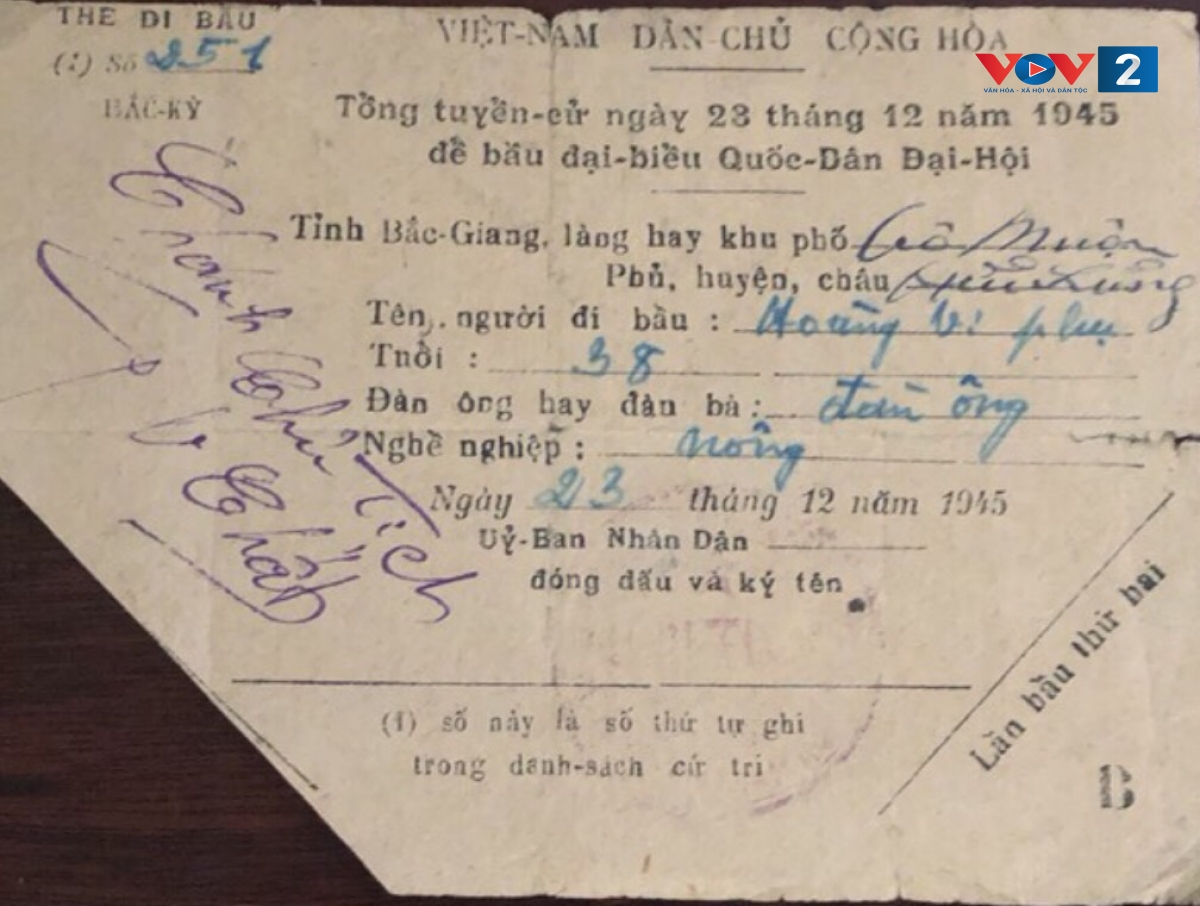 THẺ ĐI BẦU
(1) Số 251
BẮC-KỲ
VIỆT-NAM DÂN CHỦ CỘNG HÒA
VOV 2
VĂN HÓA - XÃ HỘI VÀ DÂN TỘC
Tổng tuyển-cử ngày 23 tháng 12 năm 1945
để bầu đại-biểu Quốc-Dân Đại-Hội
Tỉnh Bắc-Giang, làng hay khu phố
Phủ, huyện, châu
Tên, người đi bầu : Hoàng vi phu
Tuổi : 38
Đàn ông hay đàn bà : đàn ông
Nghề nghiệp : nông
Ngày 23 tháng 12 năm 1945
Uỷ-Ban Nhân Dân
đóng dấu và ký tên
Chủ Tịch
(1) số này là số thứ tự ghi
trong danh-sách cử tri
Lần bầu thứ hai
B